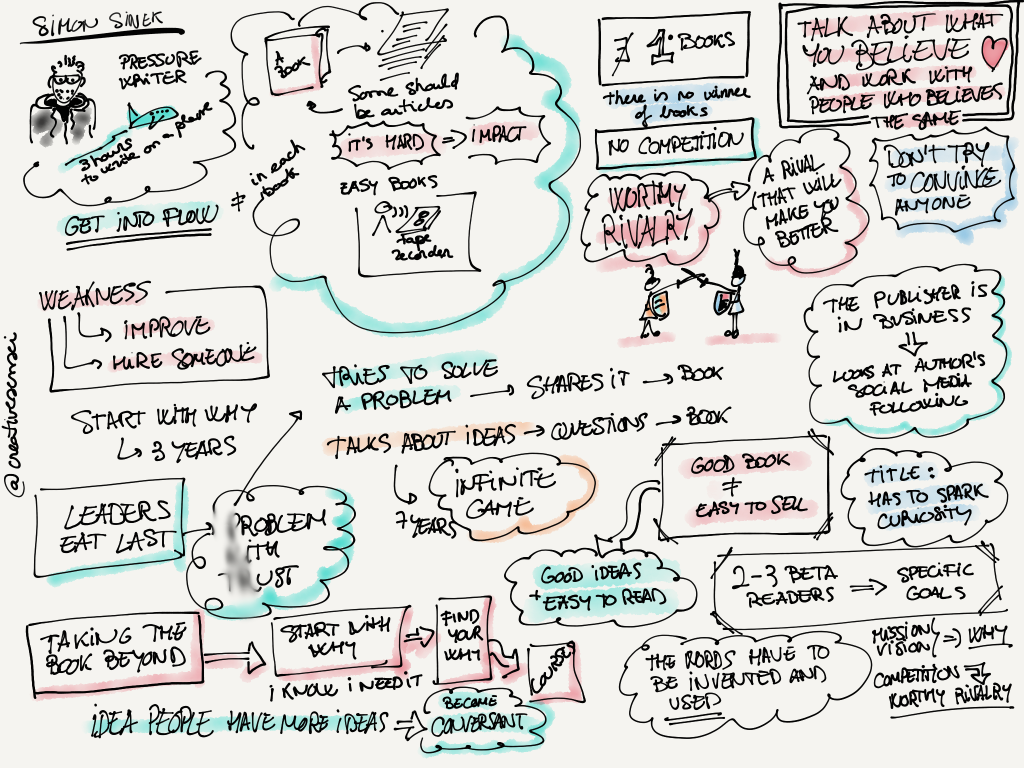 SIMON SINEK
PRESSURE
WRITER
3 hours
to write on a plane
GET INTO FLOW
≠
in each
book
A
BOOK
Some should
be articles
IT'S HARD => IMPACT
EASY BOOKS
tape
recorder
∄ 1. BOOKS
there is no winner
of books
NO COMPETITION
WORTHY
RIVALRY
A RIVAL
THAT WILL
MAKE YOU
BETTER
TALK ABOUT WHAT
YOU BELIEVE
AND WORK WITH
PEOPLE WHO BELIEVES
THE SAME
DON'T TRY
TO CONVINCE
ANYONE
THE PUBLISHER IS
IN BUSINESS
LOOKS AT AUTHOR'S
SOCIAL MEDIA
FOLLOWING
WEAKNESS
IMPROVE
HIRE SOMEONE
START WITH WHY
3 YEARS
LEADERS
EAT LAST
PROBLEM
WITH
TRUST
TRIES TO SOLVE
A PROBLEM → SHARES IT → BOOK
TALKS ABOUT IDEAS → QUESTIONS → BOOK
7 YEARS
INFINITE
GAME
GOOD BOOK
≠
EASY TO SELL
GOOD IDEAS
+ EASY TO READ
TITLE:
HAS TO SPARK
CURIOSITY
2-3 BETA
READERS => SPECIFIC
GOALS
TAKING THE
BOOK BEYOND
START WITH
WHY
I KNOW I NEED IT
FIND
YOUR
WHY
COURSE
IDEA PEOPLE HAVE MORE IDEAS =>
BECOME
CONVERSANT
THE WORDS HAVE TO
BE INVENTED AND
USED
MISSION/
VISION => WHY
COMPETITION =>
WORTHY RIVALRY
@creativesensei